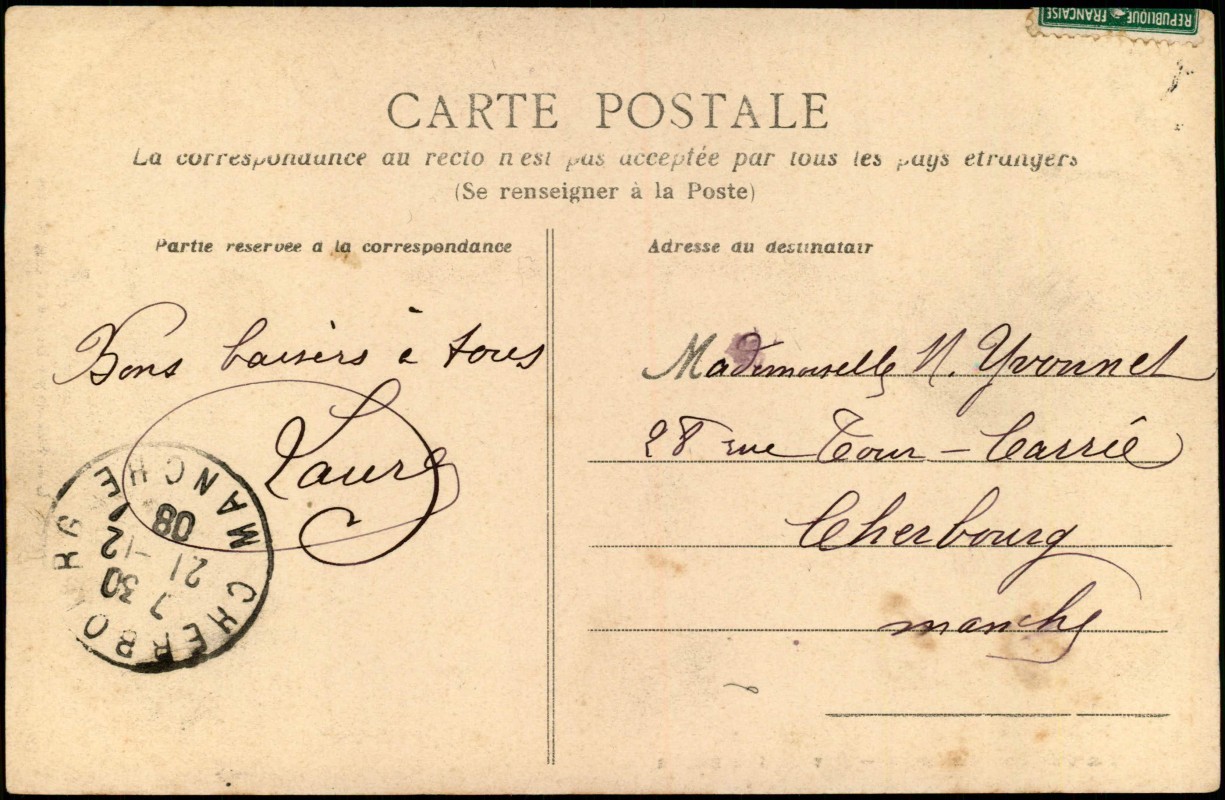 REPUBLIQUE FRANCAISE
CARTE POSTALE
La correspondance au recto n'est pas acceptée par tous les pays étrangers
(Se renseigner à la Poste)
Partie réservée à la correspondance
Adresse du destinatair
Bons baisers à tous
Laure
Mademoiselle N. Yvonnet
28 rue Tour-Carrée
Cherbourg
Manche
CHERBOURG
MANCHE
7 30
21 -12
08